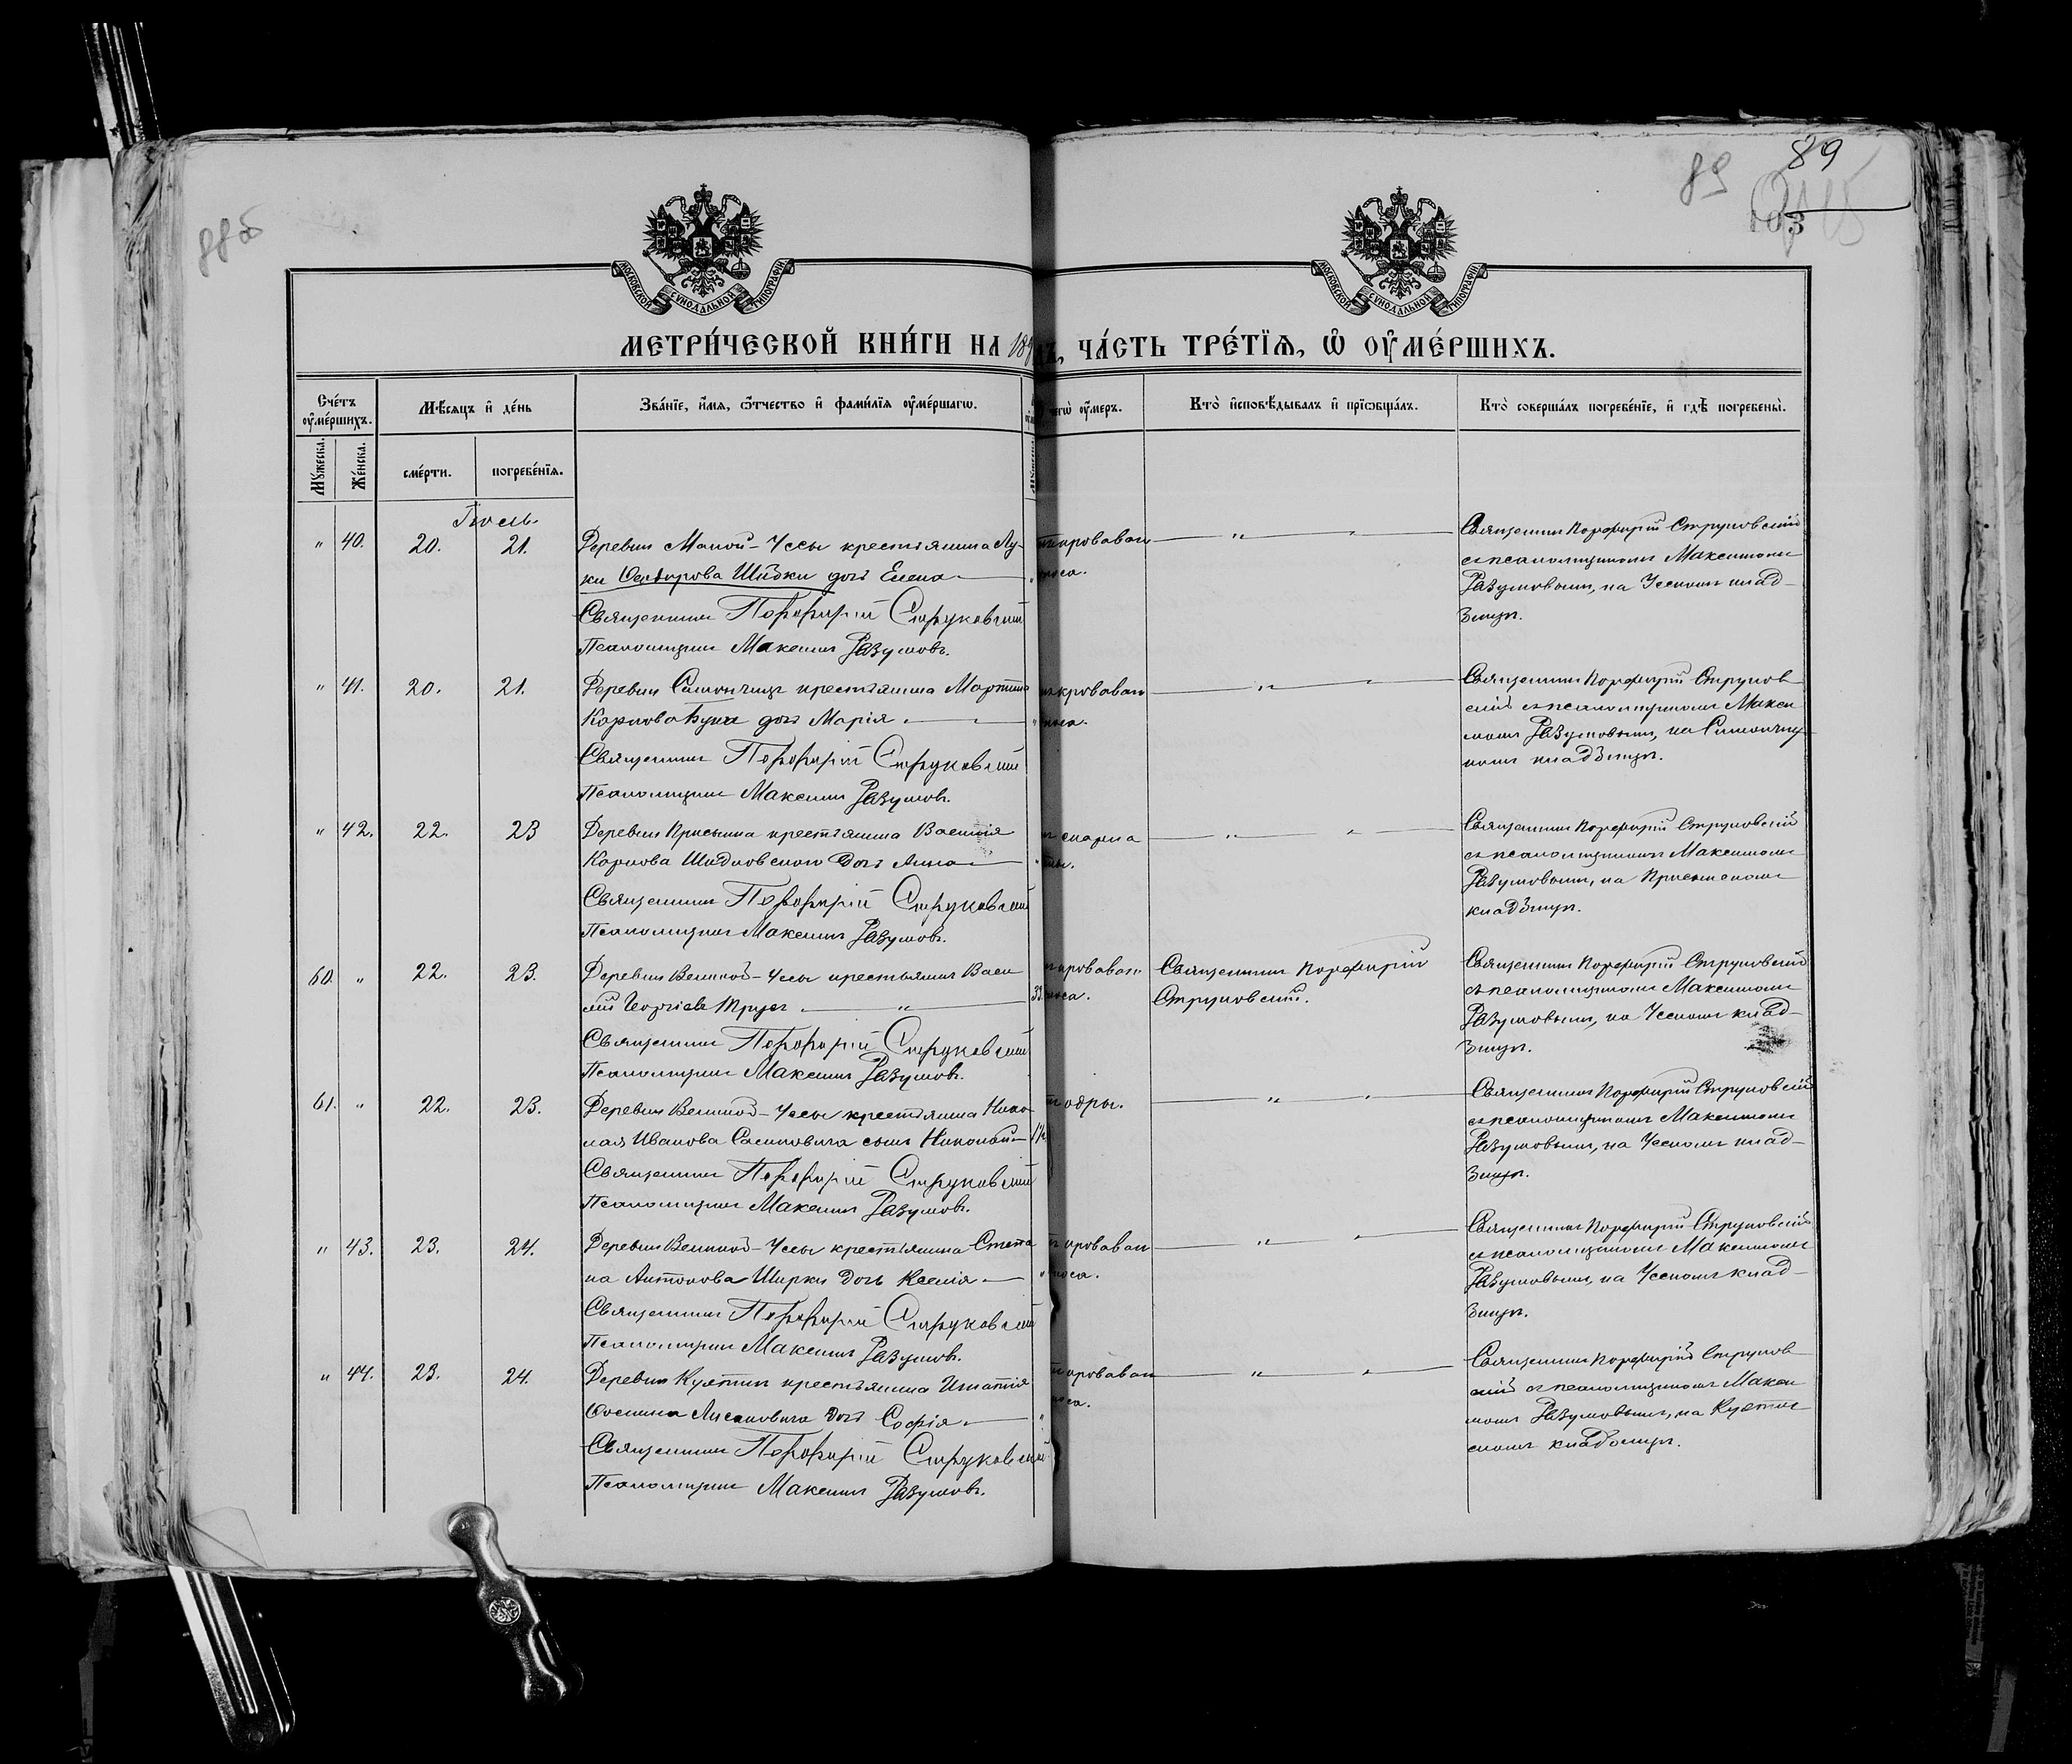 88об
89
89
103
МОСКОВСКОЙ СѴНОДАЛЬНОЙ ТИПОГРАФІИ
МОСКОВСКОЙ СѴНОДАЛЬНОЙ ТИПОГРАФІИ
МЕТРИ́ЧЕСКОЙ КНИ́ГИ НА 189
ЧА́СТЬ ТРЕ́ТЇѦ, Ѿ ОУ҆МЕ́РШИХЪ.
Сче́тъ оу҆ме́ршихъ.
Мѣ́сяцъ и҆ де́нь
Зва́нїе, и҆́мѧ, ѻ҆́тчество и҆ фами́лїѧ оу҆ме́ршагѡ.
чегѡ̀ оу҆́меръ.
Кто̀ и҆сповѣ́дывалъ и҆ прїѡбща́лъ.
Кто̀ соверша́лъ погребе́нїе, и҆ гдѣ̀ погребены̀.
Мꙋ́жеска.
Же́нска.
сме́рти.
погребе́нїѧ.
Іюль.
" 40. 20. 21. Деревни Малой-Уссы крестьянина Лу-
ки Шибки дочь Елена
Священникъ Порфирій Струковскій
Псаломщикъ Максимъ Разумовъ.
кроваваго
поноса.
Священникъ Порфирій Струковскій
съ псаломщикомъ Максимомъ
Разумовымъ, на Усскомъ клад-
бищѣ.
" 41. 20. 21. Деревни крестьянина Мартина
Карпова дочь Марія
Священникъ Порфирій Струковскій
Псаломщикъ Максимъ Разумовъ.
кроваваго
поноса.
Священникъ Порфирій Струков-
скій съ псаломщикомъ Макси-
момъ Разумовымъ, на
кладбищѣ.
" 42. 22. 23 Деревни Присынка крестьянина Василія
Карпова Шидловскаго дочь Анна
Священникъ Порфирій Струковскій
Псаломщикъ Максимъ Разумовъ.
скарла
тины.
Священникъ Порфирій Струковскій
съ псаломщикомъ Максимомъ
Разумовымъ, на Присынскомъ
кладбищѣ.
60. " 22. 23. Деревни Великой-Уссы крестьянинъ Васи
лій Георгіевъ 33.
Священникъ Порфирій Струковскій
Псаломщикъ Максимъ Разумовъ.
кроваваго
поноса.
Священникъ Порфирій
Струковскій.
Священникъ Порфирій Струковскій
съ псаломщикомъ Максимомъ
Разумовымъ, на Усскомъ клад-
бищѣ.
61. " 22. 23. Деревни Великой-Уссы крестьянина Нико-
лая Иванова сынъ Николай
Священникъ Порфирій Струковскій
Псаломщикъ Максимъ Разумовъ.
Священникъ Порфирій Струковскій
съ псаломщикомъ Максимомъ
Разумовымъ, на Усскомъ клад-
бищѣ.
" 43. 23. 24. Деревни Великой-Уссы крестьянина Степа
на Антонова Ширки дочь Ксенія
Священникъ Порфирій Струковскій
Псаломщикъ Максимъ Разумовъ.
кроваваго
поноса.
Священникъ Порфирій Струковскій
съ псаломщикомъ Максимомъ
Разумовымъ, на Усскомъ клад-
бищѣ.
" 44. 23. 24. Деревни крестьянина Игнатія
дочь Софія
Священникъ Порфирій Струковскій
Псаломщикъ Максимъ Разумовъ.
кроваваго
поноса.
Священникъ Порфирій Струков
скій съ псаломщикомъ Макси
момъ Разумовымъ, на
скомъ кладбищѣ.